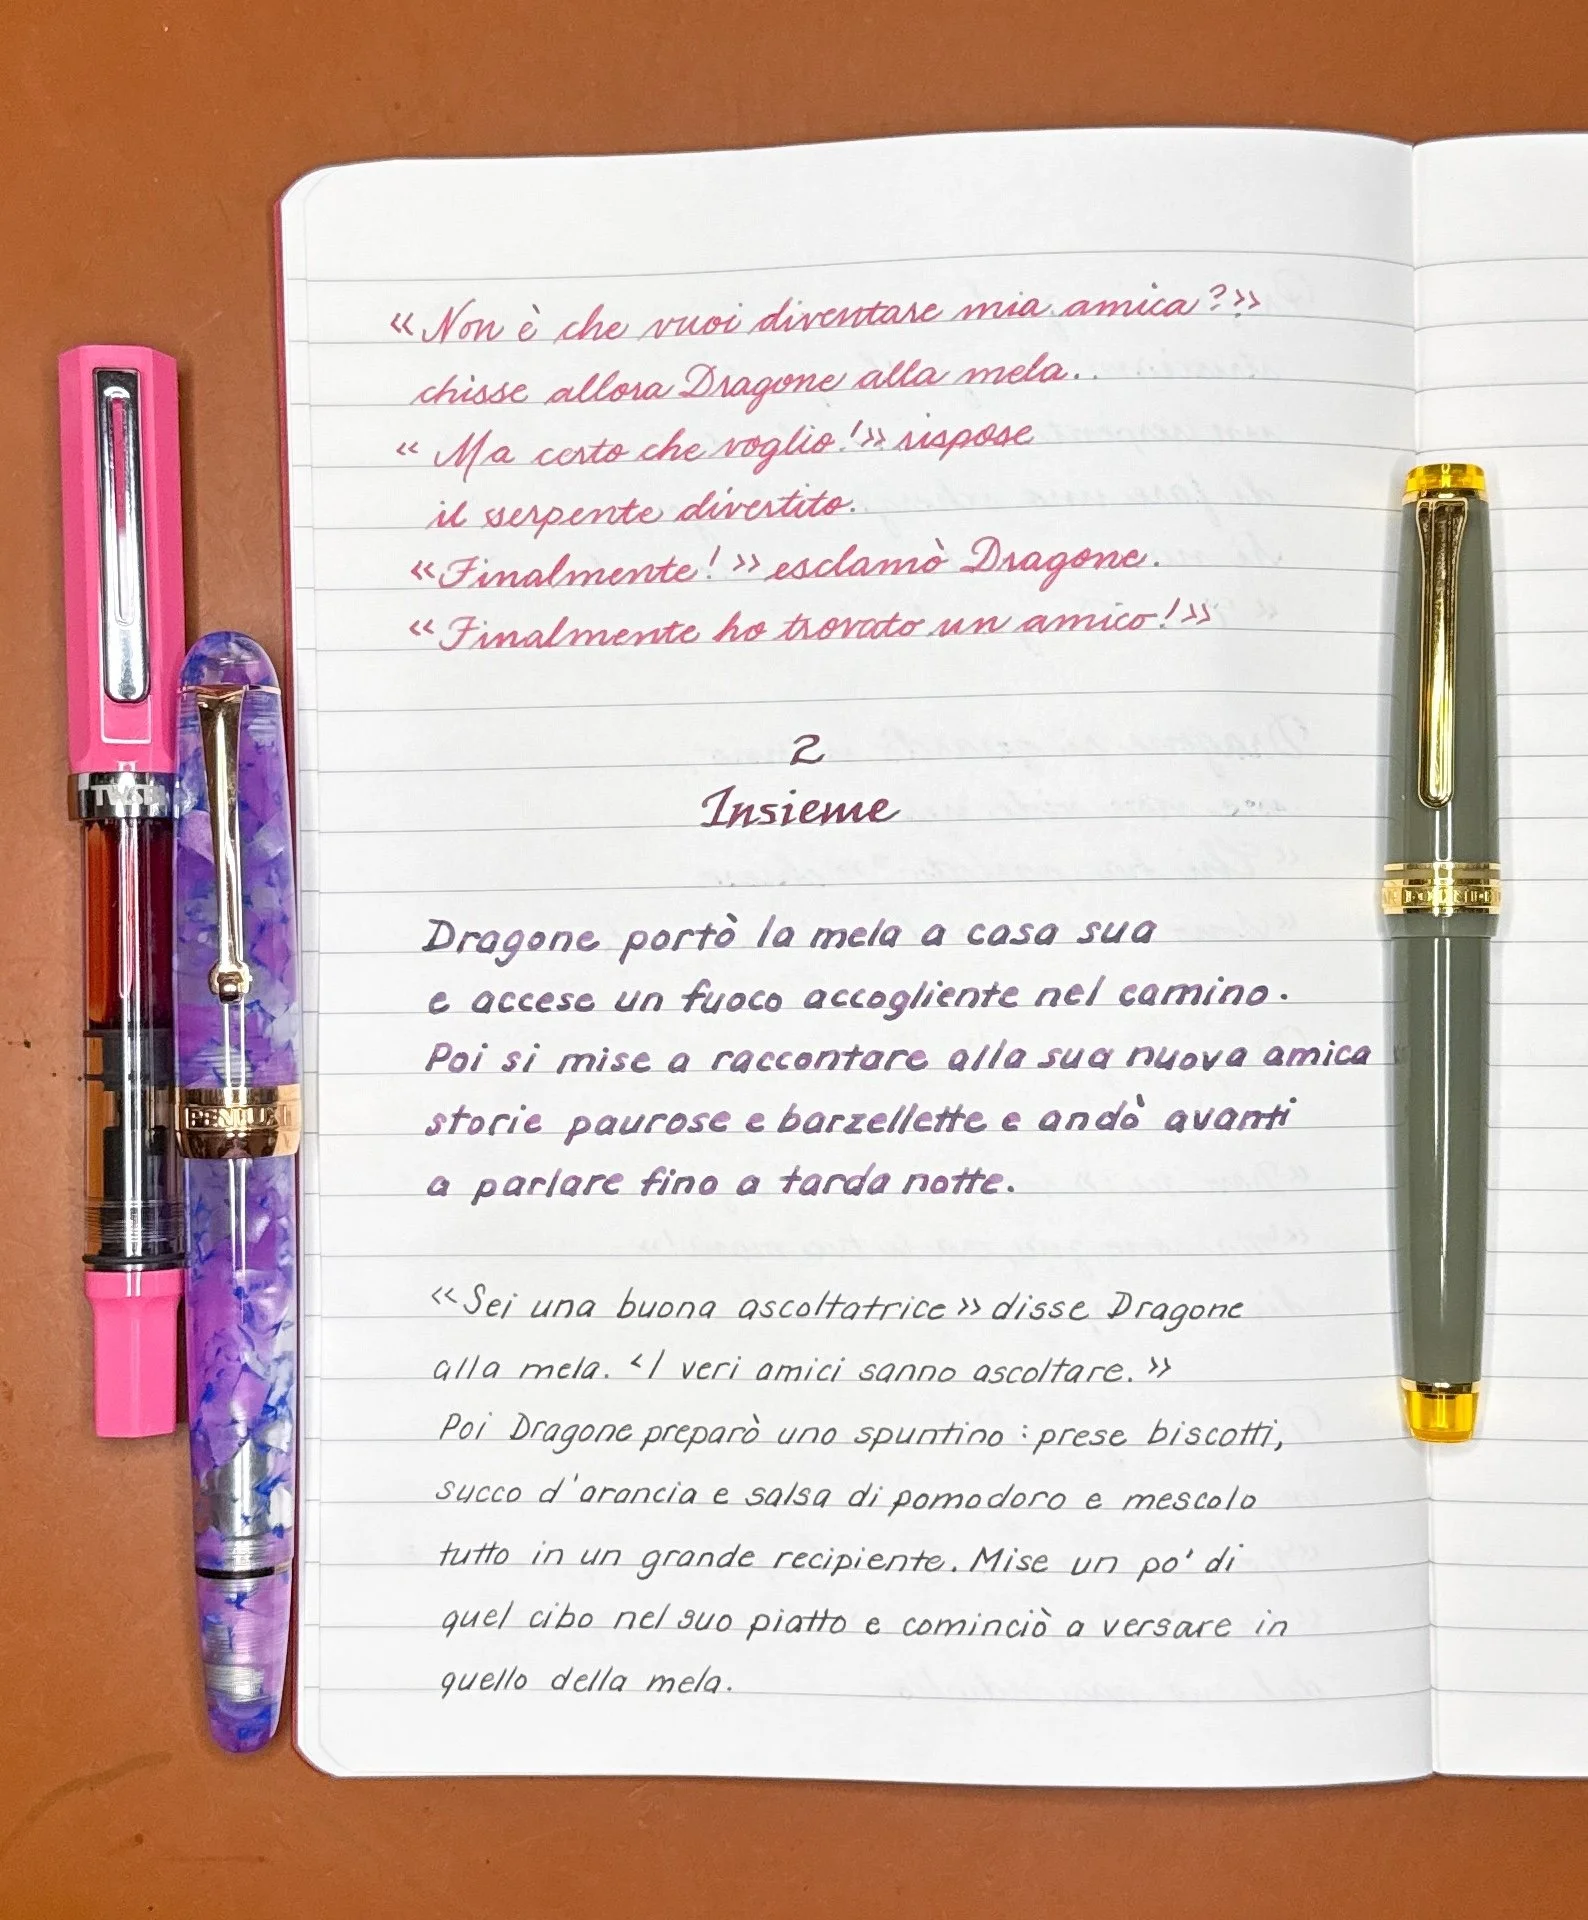 «Non è che vuoi diventare mia amica?»
chisse allora Dragone alla mela..
« Ma certo che voglio!» rispose
il serpente divertito.
«Finalmente!» esclamò Dragone.
«Finalmente ho trovato un amico!»
2
Insieme
Dragone portò la mela a casa sua
e accese un fuoco accogliente nel camino.
Poi si mise a raccontare alla sua nuova amica
storie paurose e barzellette e andò avanti
a parlare fino a tarda notte.
«Sei una buona ascoltatrice» disse Dragone
alla mela. ‹I veri amici sanno ascoltare.»
Poi Dragone preparò uno spuntino: prese biscotti,
succo d'arancia e salsa di pomodoro e mescolo
tutto in un grande recipiente. Mise un po' di
quel cibo nel suo piatto e cominciò a versare in
quello della mela.
TWSBI
PENLUX